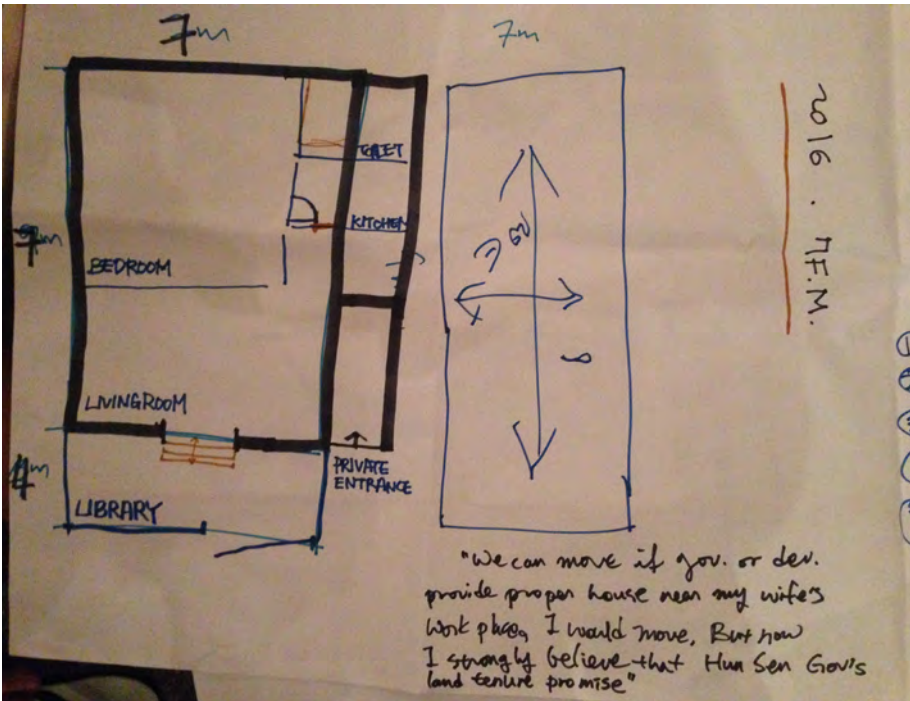 7m
7m
2016 . M.F.M.
TOILET
KITCHEN
7m
BEDROOM
LIVINGROOM
4m
PRIVATE
ENTRANCE
LIBRARY
"We can move if gov. or dev.
provide proper house near my wife's
work place, I would move, But now
I strongly believe that Hun Sen Gov's
land tenure promise"